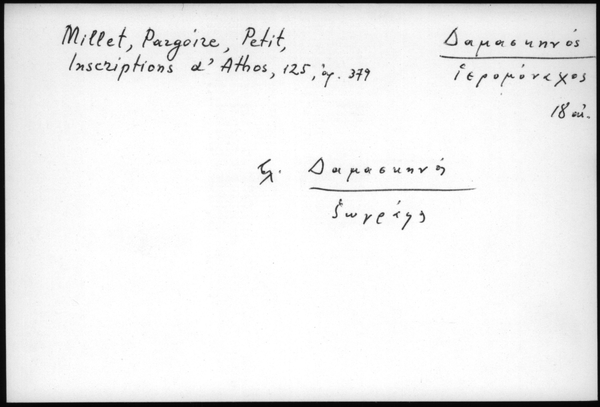 Millet, Pargoire, Petit,
Inscriptions d' Athos, 125, ἀρ. 379
Δαμασκηνός
ἱερομόναχος
18 αἰ.
Δαμασκηνός
ζωγράφος